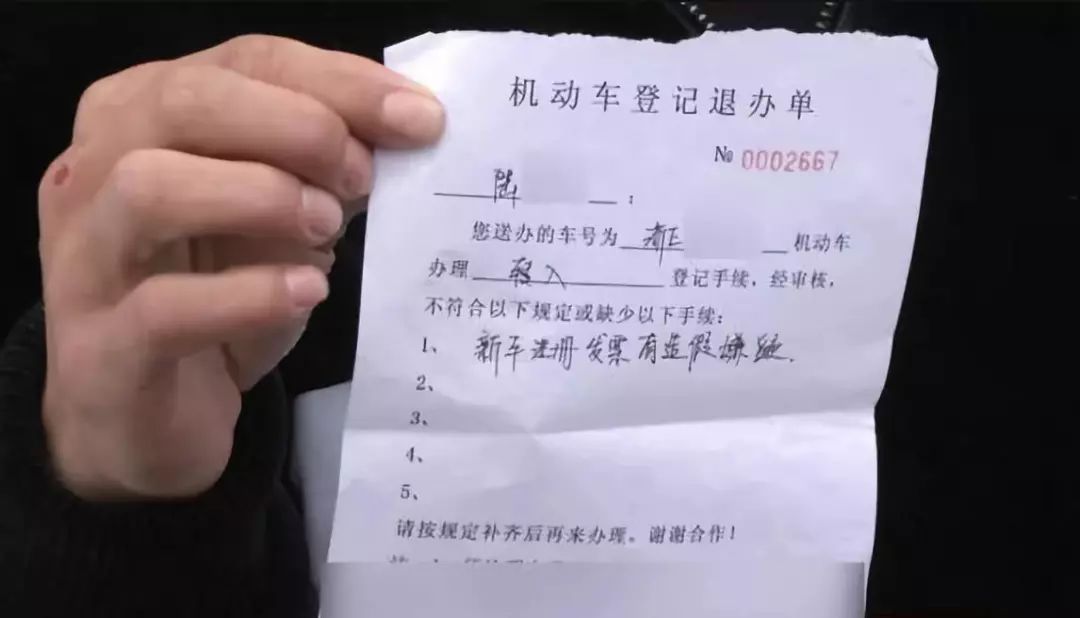 机动车登记退办单
№ 0002667
陆：
您送办的车号为 机动车
办理 转入 登记手续，经审核，
不符合以下规定或缺少以下手续：
1、新车注册发票有造假嫌疑.
2、
3、
4、
5、
请按规定补齐后再来办理。谢谢合作！